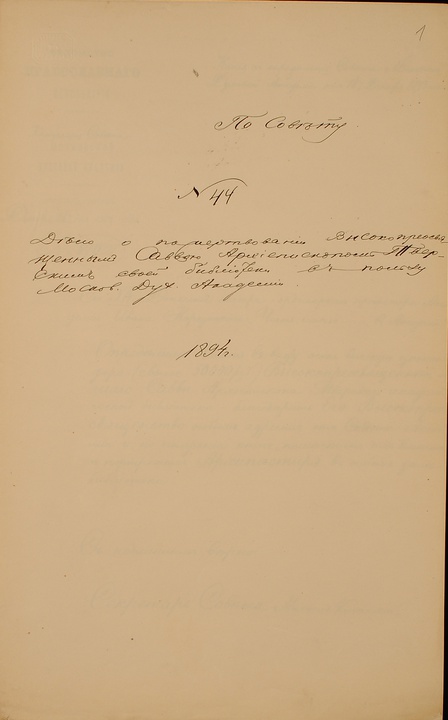 1
По Совѣту
№ 44
Дѣло о пожертвованіи Высокопреосвя-
щеннымъ Саввою Архіепископомъ Твер-
скимъ своей библіотеки въ пользу
Москов. Дух. Академіи.
1894г.